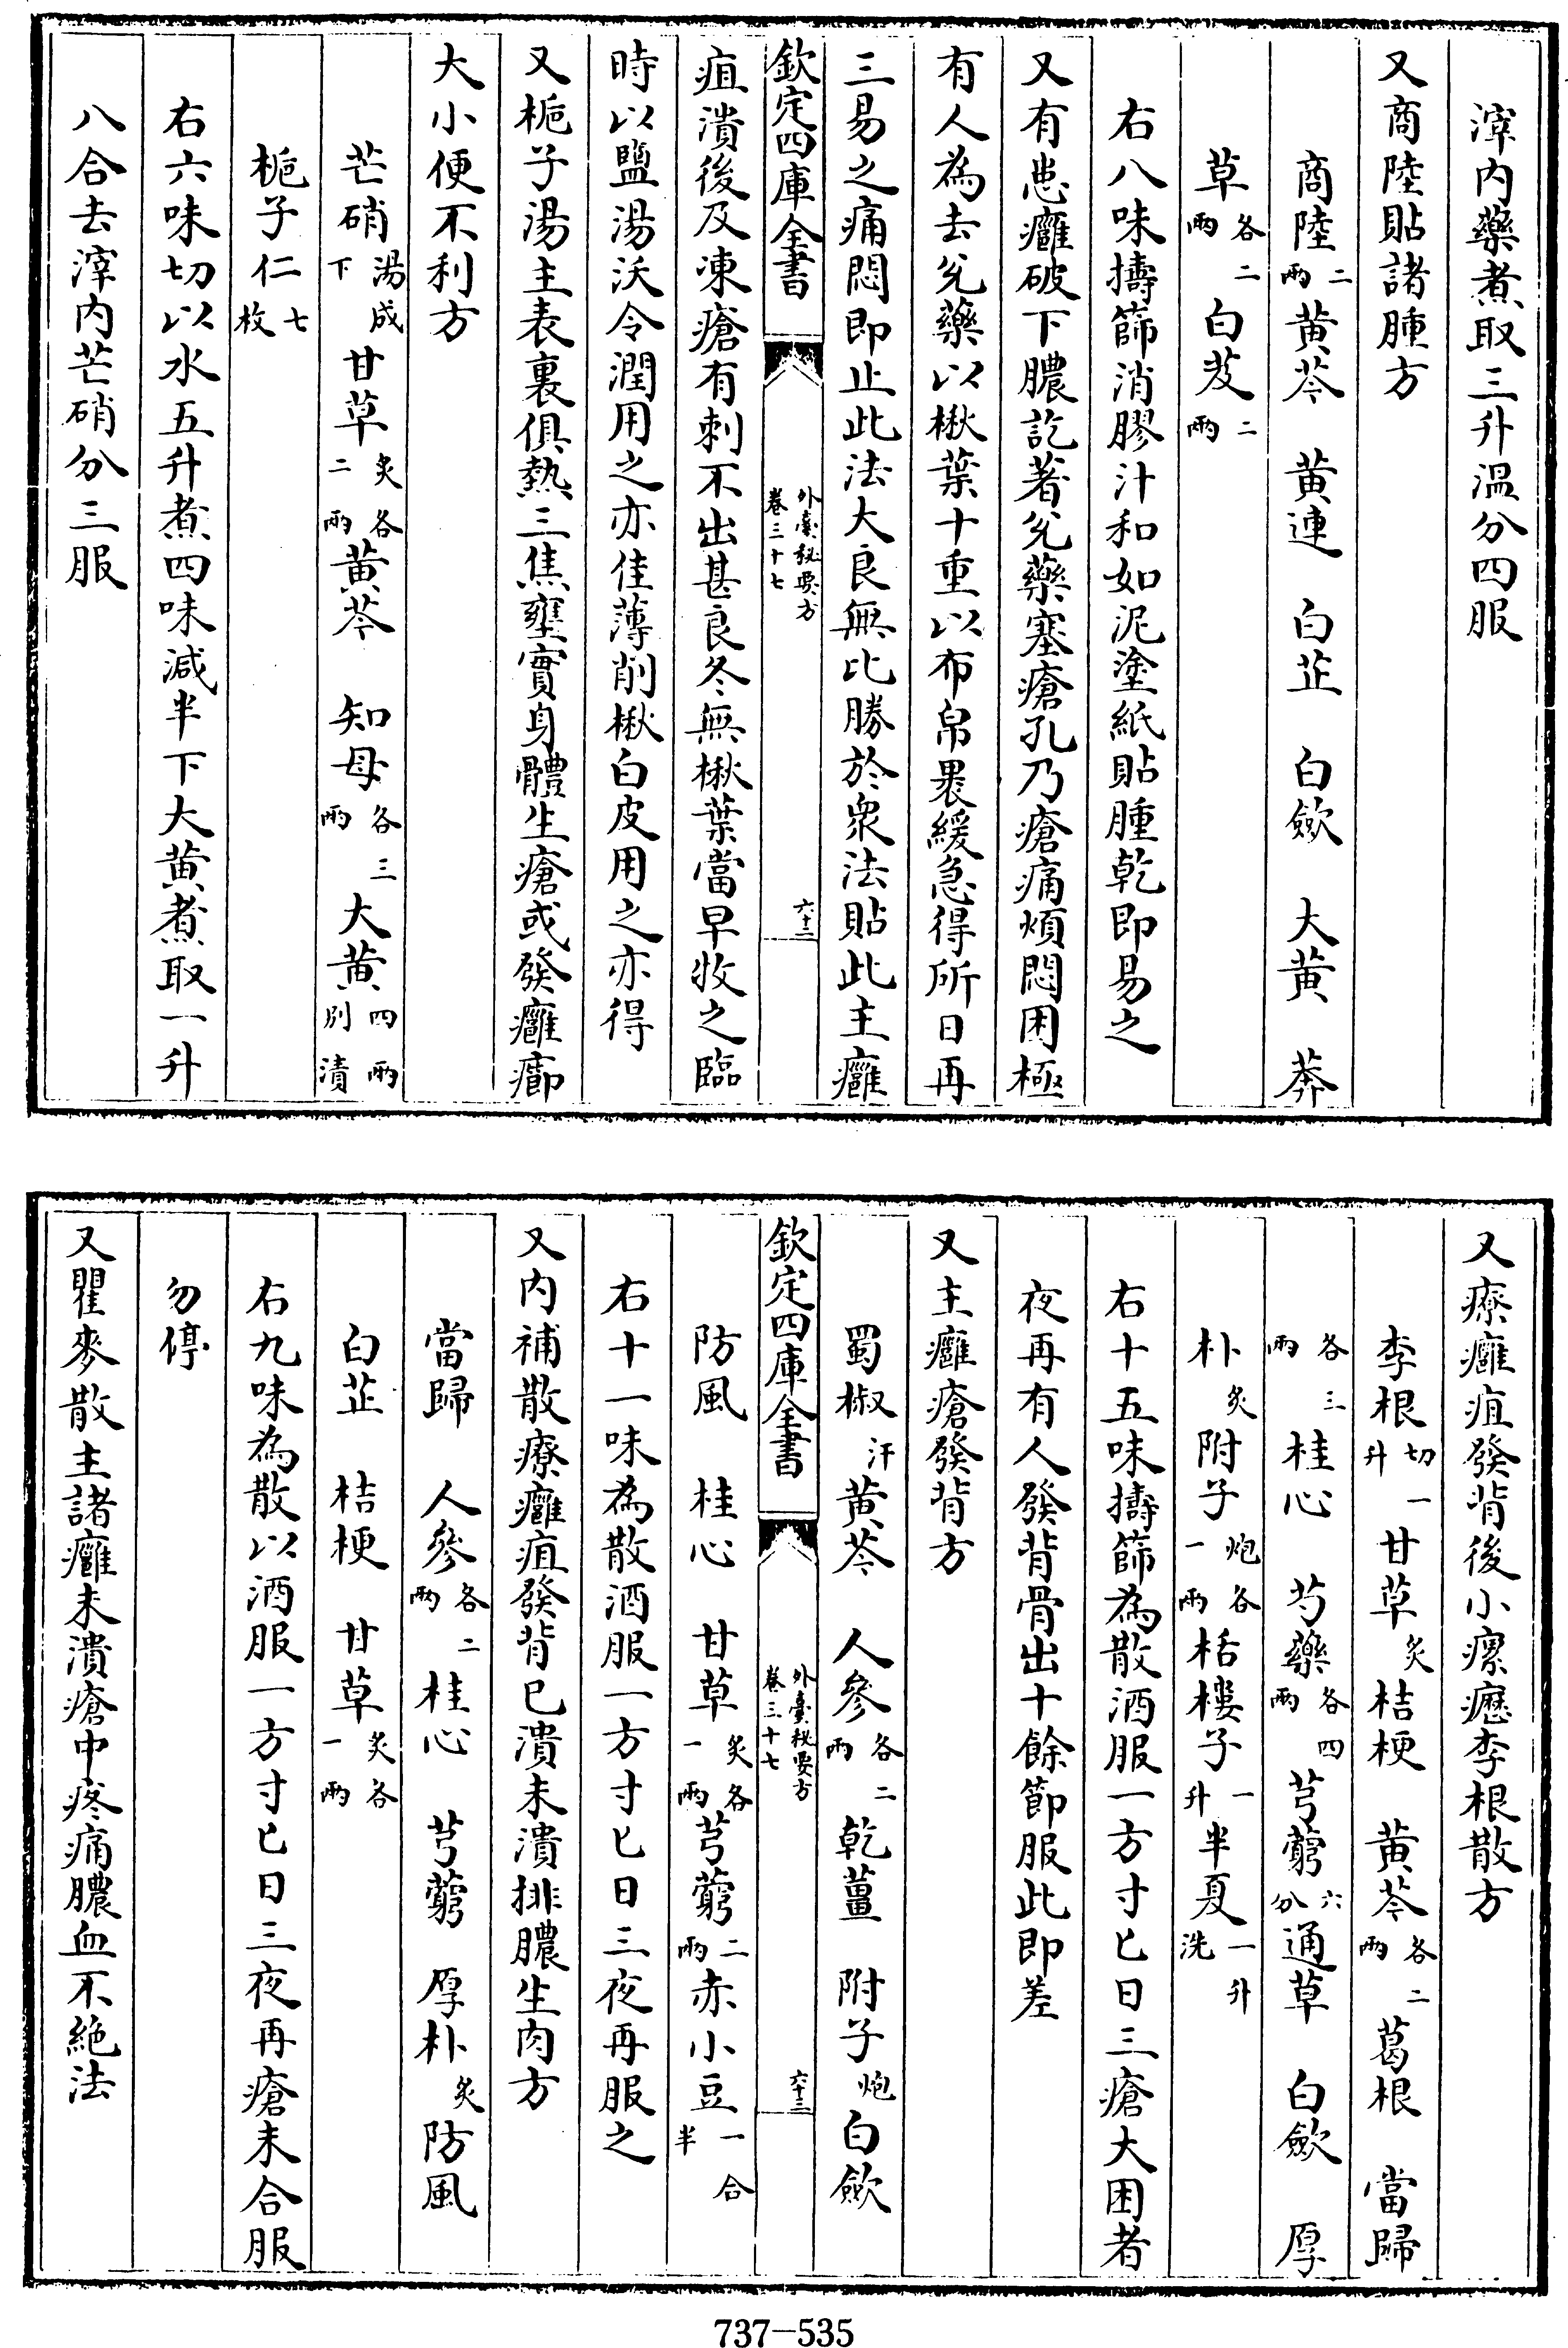 滓内藥煮取三升溫分四服
又商陸貼諸腫方
商陸二兩黄芩　黄連　白芷　白歛　大黄　莽
草各二兩白芨二兩
右八味擣篩消膠汁和如泥塗紙貼腫乾即易之
又有患癰破下膿訖著兊藥塞瘡孔乃瘡痛煩悶困極
有人為去兊藥以楸葉十重以布帛褁緩急得所日再
三易之痛悶即止此法大良無比勝於衆法貼此主癰
欽定四庫全書　外臺秘要方卷三十七　六十三
疽潰後及凍瘡有刺不出甚良冬無楸葉當早收之臨
時以鹽湯沃令潤用之亦佳薄削楸白皮用之亦得
又梔子湯主表裏俱熱三焦壅實身體生瘡或發癰癤
大小便不利方
芒硝湯成下甘草炙各二兩黄芩　知母各三兩大黄四兩别漬
梔子仁七枚
右六味切以水五升煮四味減半下大黄煮取一升
八合去滓内芒硝分三服
又療癰疽發背後小瘰癧李根散方
李根切一升甘草炙桔梗　黄芩各二兩葛根　當歸
各三兩桂心　芍藥各四兩芎藭六分通草　白歛　厚
朴炙附子炮各一兩栝樓子一升半夏一升洗
右十五味擣篩為散酒服一方寸匕日三瘡大困者
夜再有人發背骨出十餘節服此即差
又主癰瘡發背方
蜀椒汗黄芩　人參各二兩乾薑　附子炮白歛
欽定四庫全書　外臺秘要方卷三十七　六十三
防風　桂心　甘草炙各一兩芎藭二兩赤小豆一合半
右十一味為散酒服一方寸匕日三夜再服之
又内補散療癰疽發背已潰未潰排膿生肉方
當歸　人參各二兩桂心　芎藭　厚朴炙防風
白芷　桔梗　甘草炙各一兩
右九味為散以酒服一方寸匕日三夜再瘡未合服
勿停
又瞿麥散主諸癰未潰瘡中疼痛膿血不絶法
737-535